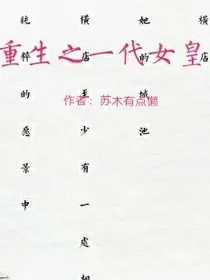 重生之一代女皇
作者：苏木有点懒
橫店
她的城池
橫店的至少有一處
粹的愿景中